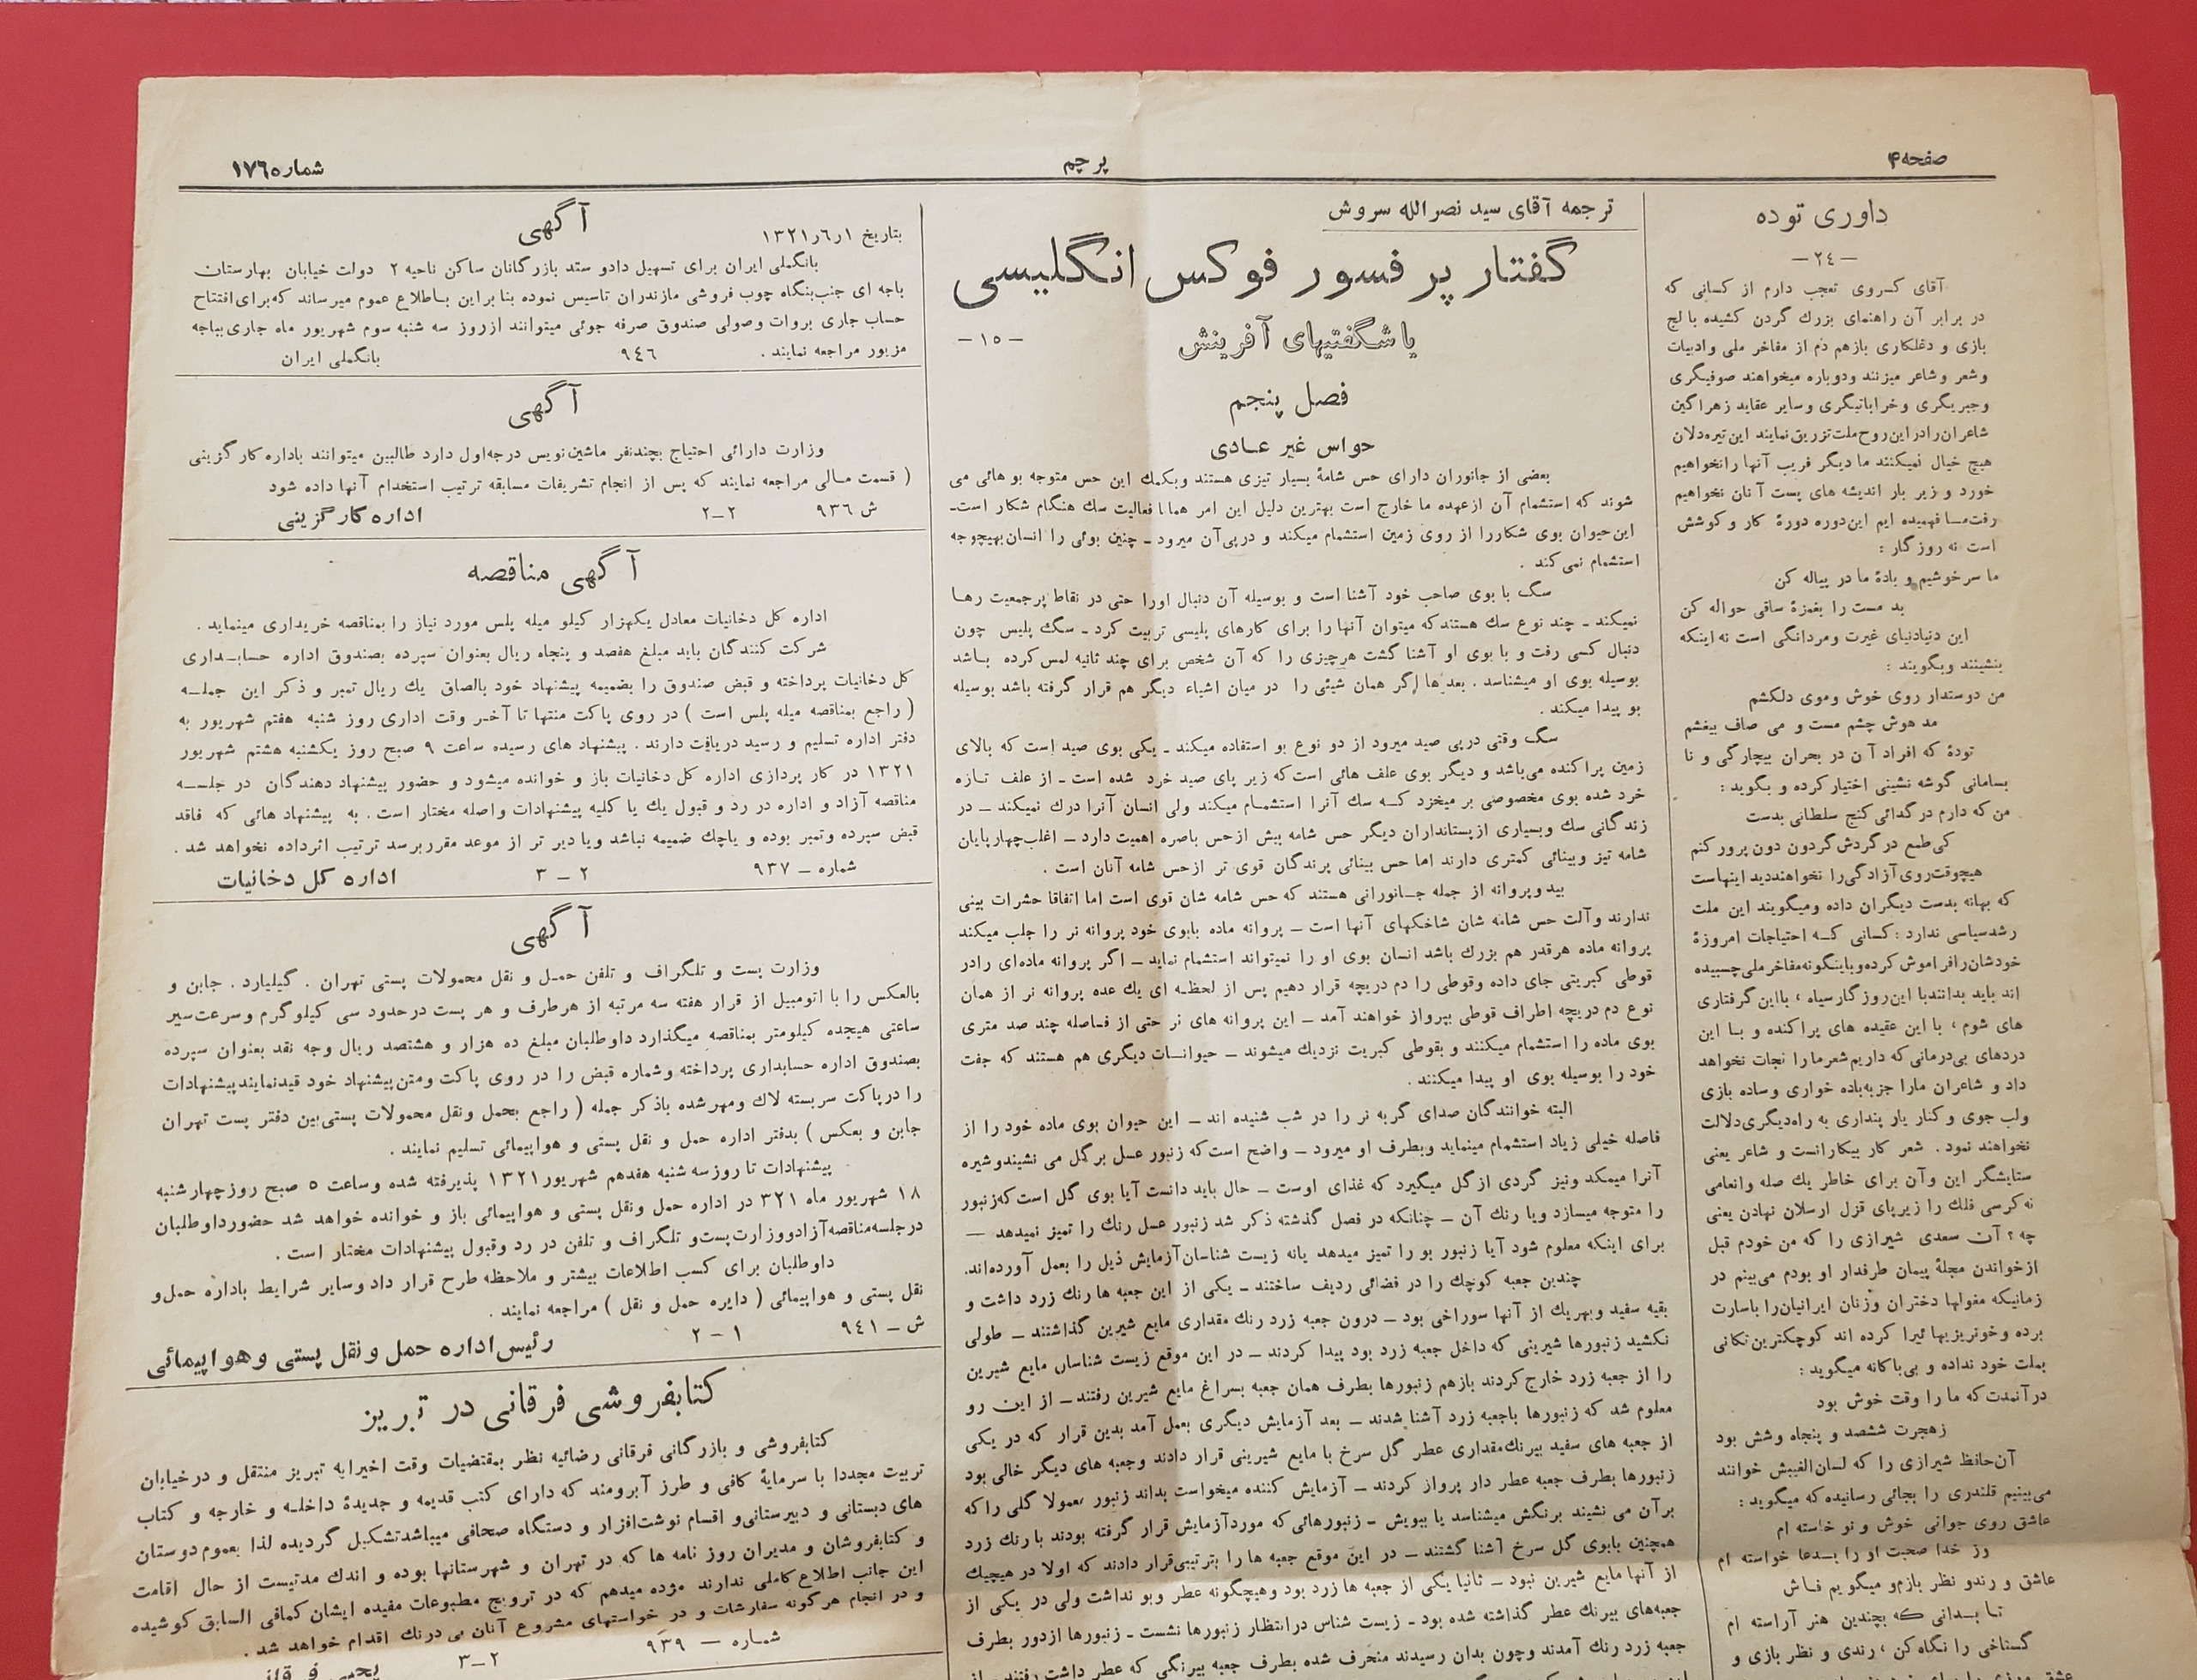 صفحه ۴
پرچم
شماره ۱۷۶
داوری توده
— ۲٤ —
آقای کسروی تعجب دارم از کسانی که
در برابر آن راهنمای بزرك گردن کشیده با لج
بازی و دغلکاری بازهم دم از مفاخر ملی وادبیات
وشعر و شاعر میزنند ودوباره میخواهند صوفیگری
وجبریگری وخراباتیگری وسایر عقاید زهراگین
شاعران رادراین روح ملت تزریق نمایند این تیره دلان
هیچ خیال نمیکنند ما دیگر فریب آنها رانخواهیم
خورد و زیر بار اندیشه های پست آنان نخواهیم
رفت مـا فهمیده ایم این دوره دورهٔ کار و کوشش
است نه روزگار :
ما سرخوشیم و بادهٔ ما در پیاله کن
بد مست را بغمزهٔ ساقی حواله کن
این دنیادنیای غیرت ومردانگی است نه اینکه
بنشینند وبگویند :
من دوستدار روی خوش وموی دلکشم
مد هوش چشم مست و می صاف بیغشم
تودهٔ که افراد آن در بحران بیچارگی و نا
بسامانی گوشه نشینی اختیار کرده و بگوید :
من که دارم در گدائی کنج سلطانی بدست
کی طمع در گردش گردون دون پرور کنم
هیچوقت روی آزادگی را نخواهند دید اینهاست
که بهانه بدست دیگران داده ومیگویند این ملت
رشد سیاسی ندارد : کسانی کـه احتیاجات امروزهٔ
خودشان رافراموش کرده و باینگونه مفاخر ملی چسبیده
اند باید بدانند با این روزگار سیاه ، بااین گرفتاری
های شوم ، با این عقیده های پراکنده و بـا این
دردهای بی‌درمانی که داریم شعر ما را نجات نخواهد
داد و شاعران مارا جز به باده خواری وساده بازی
ولب جوی و کنار یار پنداری به راه دیگری دلالت
نخواهند نمود . شعر کار بیکارانست و شاعر یعنی
ستایشگر این وآن برای خاطر یك صله وانعامی
نه کرسی فلك را زیر پای قزل ارسلان نهادن یعنی
چه ؟ آن سعدی شیرازی را که من خودم قبل
از خواندن مجلهٔ پیمان طرفدار او بودم می‌بینم در
زمانیکه مغولها دختران وزنان ایرانیان را باسارت
برده وخونریزیها ئیرا کرده اند کوچکترین تکانی
بملت خود نداده و بی‌باکانه میگوید :
در آنمدت که ما را وقت خوش بود
زهجرت ششصد و پنجاه وشش بود
آن حافظ شیرازی را که لسان الغیبش خوانند
می‌بینیم قلندری را بجائی رسانیده که میگوید :
عاشق روی جوانی خوش و نو خاسته ام
وز خدا صحبت او را بـدعا خواسته ام
عاشق و رندو نظر بازم و میگویم فـاش
تـا بـدانی که بچندین هنر آراسته ام
گستاخی را نگاه کن ، رندی و نظر بازی و
ترجمه آقای سید نصرالله سروش
گفتار پر فسور فوکس انگلیسی
یا شگفتیهای آفرینش
— ۱۵ —
فصل پنجم
حواس غیر عـادی
بعضی از جانوران دارای حس شامهٔ بسیار تیزی هستند وبکمك این حس متوجه بو هائی می
شوند که استشمام آن از عهده ما خارج است بهترین دلیل این امر همانا فعالیت سك هنگام شکار است ـ
این حیوان بوی شکاررا از روی زمین استشمام میکند و در پی آن میرود ـ چنین بوئی را انسان بهیچوجه
استشمام نمی کند .
سگ با بوی صاحب خود آشنا است و بوسیله آن دنبال اورا حتی در نقاط پرجمعیت رهـا
نمیکند ـ چند نوع سك هستند که میتوان آنها را برای کارهای پلیسی تربیت کرد ـ سگ پلیس چون
دنبال کسی رفت و با بوی او آشنا گشت هرچیزی را که آن شخص برای چند ثانیه لمس کرده بـاشد
بوسیله بوی او میشناسد . بعدها اگر همان شیئی را در میان اشیاء دیگر هم قرار گرفته باشد بوسیله
بو پیدا میکند .
سگ وقتی در پی صید میرود از دو نوع بو استفاده میکند ـ یکی بوی صید است که بالای
زمین پراکنده می‌باشد و دیگر بوی علف هائی است که زیر پای صید خرد شده است ـ از علف تـازه
خرد شده بوی مخصوصی بر میخزد کـه سك آنرا استشمـام میکند ولی انسان آنرا درك نمیکند ـ در
زندگانی سك وبسیاری از پستانداران دیگر حس شامه بیش از حس باصره اهمیت دارد ـ اغلب چهارپایان
شامه تیز وبینائی کمتری دارند اما حس بینائی پرندگان قوی تر ازحس شامه آنان است .
بید و پروانه از جمله جـانورانی هستند که حس شامه شان قوی است اما اتفاقا حشرات بینی
ندارند وآلت حس شامه شان شاخکهای آنها است ـ پروانه ماده بابوی خود پروانه نر را جلب میکند
پروانه ماده هرقدر هم بزرك باشد انسان بوی او را نمیتواند استشمام نماید ـ اگر پروانه ماده‌ای رادر
قوطی کبریتی جای داده وقوطی را دم دریچه قرار دهیم پس از لحظـه ای یك عده پروانه نر از همان
نوع دم دریچه اطراف قوطی بپرواز خواهند آمد ـ این پروانه های نر حتی از فـاصله چند صد متری
بوی ماده را استشمام میکنند و بقوطی کبریت نزدیك میشوند ـ حیوانـات دیگری هم هستند که جفت
خود را بوسیله بوی او پیدا میکنند .
البته خوانندگان صدای گربه نر را در شب شنیده اند ـ این حیوان بوی ماده خود را از
فاصله خیلی زیاد استشمام مینماید وبطرف او میرود ـ واضح است که زنبور عسل بر گل می نشیند و شیره
آنرا میمکد ونیز گردی از گل میگیرد که غذای اوست ـ حال باید دانست آیا بوی گل است که زنبور
را متوجه میسازد ویا رنك آن ـ چنانکه در فصل گذشته ذکر شد زنبور عسل رنك را تمیز نمیدهد —
برای اینکه معلوم شود آیا زنبور بو را تمیز میدهد یانه زیست شناسان آزمایش ذیل را بعمل آورده‌اند.
چندین جعبه کوچك را در فضائی ردیف ساختند ـ یکی از این جعبه ها رنك زرد داشت و
بقیه سفید وبهریك از آنها سوراخی بود ـ درون جعبه زرد رنك مقداری مایع شیرین گذاشتند ـ طولی
نکشید زنبورها شیرینی که داخل جعبه زرد بود پیدا کردند ـ در این موقع زیست شناسان مایع شیرین
را از جعبه زرد خارج کردند بازهم زنبورها بطرف همان جعبه بسراغ مایع شیرین رفتند ـ از این رو
معلوم شد که زنبورها باجعبه زرد آشنا شدند ـ بعد آزمایش دیگری بعمل آمد بدین قرار که در یکی
از جعبه های سفید بیرنك مقداری عطر گل سرخ با مایع شیرینی قرار دادند وجعبه های دیگر خالی بود
زنبورها بطرف جعبه عطر دار پرواز کردند ـ آزمایش کننده میخواست بداند زنبور معمولا گلی را که
برآن می نشیند برنگش میشناسد یا ببویش ـ زنبورهائی که مورد آزمایش قرار گرفته بودند با رنك زرد
همچنین بابوی گل سرخ آشنا گشتند ـ در این موقع جعبه ها را بترتیبی قرار دادند که اولا در هیچیك
از آنها مایع شیرین نبود ـ ثانیا یکی از جعبه ها زرد بود وهیچگونه عطر وبو نداشت ولی در یکی از
جعبه‌های بیرنك عطر گذاشته شده بود ـ زیست شناس در انتظار زنبورها نشست ـ زنبورها ازدور بطرف
جعبه زرد رنك آمدند وچون بدان رسیدند منحرف شده بطرف جعبه بیرنگی که عطر داشت رفتند ـ از
آگهی
بتاریخ ۱ر٦ر۱۳۲۱
بانکملی ایران برای تسهیل دادو ستد بازرگانان ساکن ناحیه ۲ دولت خیابان بهارستان
باجه ای جنب بنگاه چوب فروشی مازندران تاسیس نموده بنابراین بـاطلاع عموم میرساند که برای افتتاح
حساب جاری بروات وصولی صندوق صرفه جوئی میتوانند از روز سه شنبه سوم شهریور ماه جاری بباجه
مزبور مراجعه نمایند . ۹٤٦ بانکملی ایران
آگهی
وزارت دارائی احتیاج بچند نفر ماشین نویس درجه اول دارد طالبین میتوانند باداره کارگزینی
( قسمت مـالی مراجعه نمایند که پس از انجام تشریفات مسابقه ترتیب استخدام آنها داده شود
ش ۹۳٦ ۲ـ۲ اداره کارگزینی
آگهی مناقصه
اداره کل دخانیات معادل یکهزار کیلو میله پلس مورد نیاز را بمناقصه خریداری مینماید .
شرکت کنندگان باید مبلغ هفصد و پنجاه ریال بعنوان سپرده بصندوق اداره حسابـداری
کل دخانیات پرداخته و قبض صندوق را بضمیمه پیشنهاد خود بالصاق یك ریال تمبر و ذکر این جملـه
( راجع بمناقصه میله پلس است ) در روی پاکت منتها تا آخـر وقت اداری روز شنبه هفتم شهریور به
دفتر اداره تسلیم و رسید دریافت دارند . پیشنهاد های رسیده ساعت ۹ صبح روز یکشنبه هشتم شهریور
۱۳۲۱ در کار پردازی اداره کل دخانیات باز و خوانده میشود و حضور پیشنهاد دهندگان در جلسـه
مناقصه آزاد و اداره در رد و قبول یك یا کلیه پیشنهادات واصله مختار است . به پیشنهاد هائی که فاقد
قبض سپرده وتمبر بوده و یاچك ضمیمه نباشد ویا دیر تر از موعد مقرر برسد ترتیب اثر داده نخواهد شد .
شماره ـ ۹۳۷ ۲ ـ ۳ اداره کل دخانیات
آگهی
وزارت پست و تلگراف و تلفن حمـل و نقل محمولات پستی تهران . گیلیارد . جابن و
بالعکس را با اتومبیل از قرار هفته سه مرتبه از هر طرف و هر پست در حدود سی کیلو گرم و سرعت سیر
ساعتی هیجده کیلومتر بمناقصه میگذارد داوطلبان مبلغ ده هزار و هشتصد ریال وجه نقد بعنوان سپرده
بصندوق اداره حسابداری پرداخته وشماره قبض را در روی پاکت ومتن پیشنهاد خود قید نمایند پیشنهادات
را در پاکت سربسته لاك ومهر شده باذکر جمله ( راجع بحمل ونقل محمولات پستی بین دفتر پست تهران
جابن و بعکس ) بدفتر اداره حمل و نقل پستی و هواپیمائی تسلیم نمایند .
پیشنهادات تا روز سه شنبه هفدهم شهریور ۱۳۲۱ پذیرفته شده و ساعت ٥ صبح روز چهارشنبه
۱۸ شهریور ماه ۳۲۱ در اداره حمل ونقل پستی و هواپیمائی باز و خوانده خواهد شد حضور داوطلبان
در جلسه مناقصه آزاد و وزارت پست و تلگراف و تلفن در رد وقبول پیشنهادات مختار است .
داوطلبان برای کسب اطلاعات بیشتر و ملاحظه طرح قرار داد وسایر شرایط باداره حمل و
نقل پستی و هواپیمائی ( دایره حمل و نقل ) مراجعه نمایند .
ش ـ ۹٤۱ ۱ – ۲ رئیس اداره حمل و نقل پستی و هواپیمائی
کتابفروشی فرقانی در تبریز
کتابفروشی و بازرگانی فرقانی رضائیه نظر بمقتضیات وقت اخیرا به تبریز منتقل و در خیابان
تربیت مجددا با سرمایهٔ کافی و طرز آبرومند که دارای کتب قدیمه و جدیدهٔ داخلـه و خارجه و کتاب
های دبستانی و دبیرستانی و اقسام نوشت افزار و دستگاه صحافی میباشد تشکیل گردیده لذا بعموم دوستان
و کتابفروشان و مدیران روز نامه ها که در تهران و شهرستانها بوده و اندك مدتیست از حال اقامت
این جانب اطلاع کاملی ندارند مژده میدهم که در ترویج مطبوعات مفیده ایشان کمافی السابق کوشیده
و در انجام هر گونه سفارشات و در خواستهای مشروع آنان بی درنك اقدام خواهد شد .
شمـاره — ۹۳۹ ۲ـ۳
یحیی